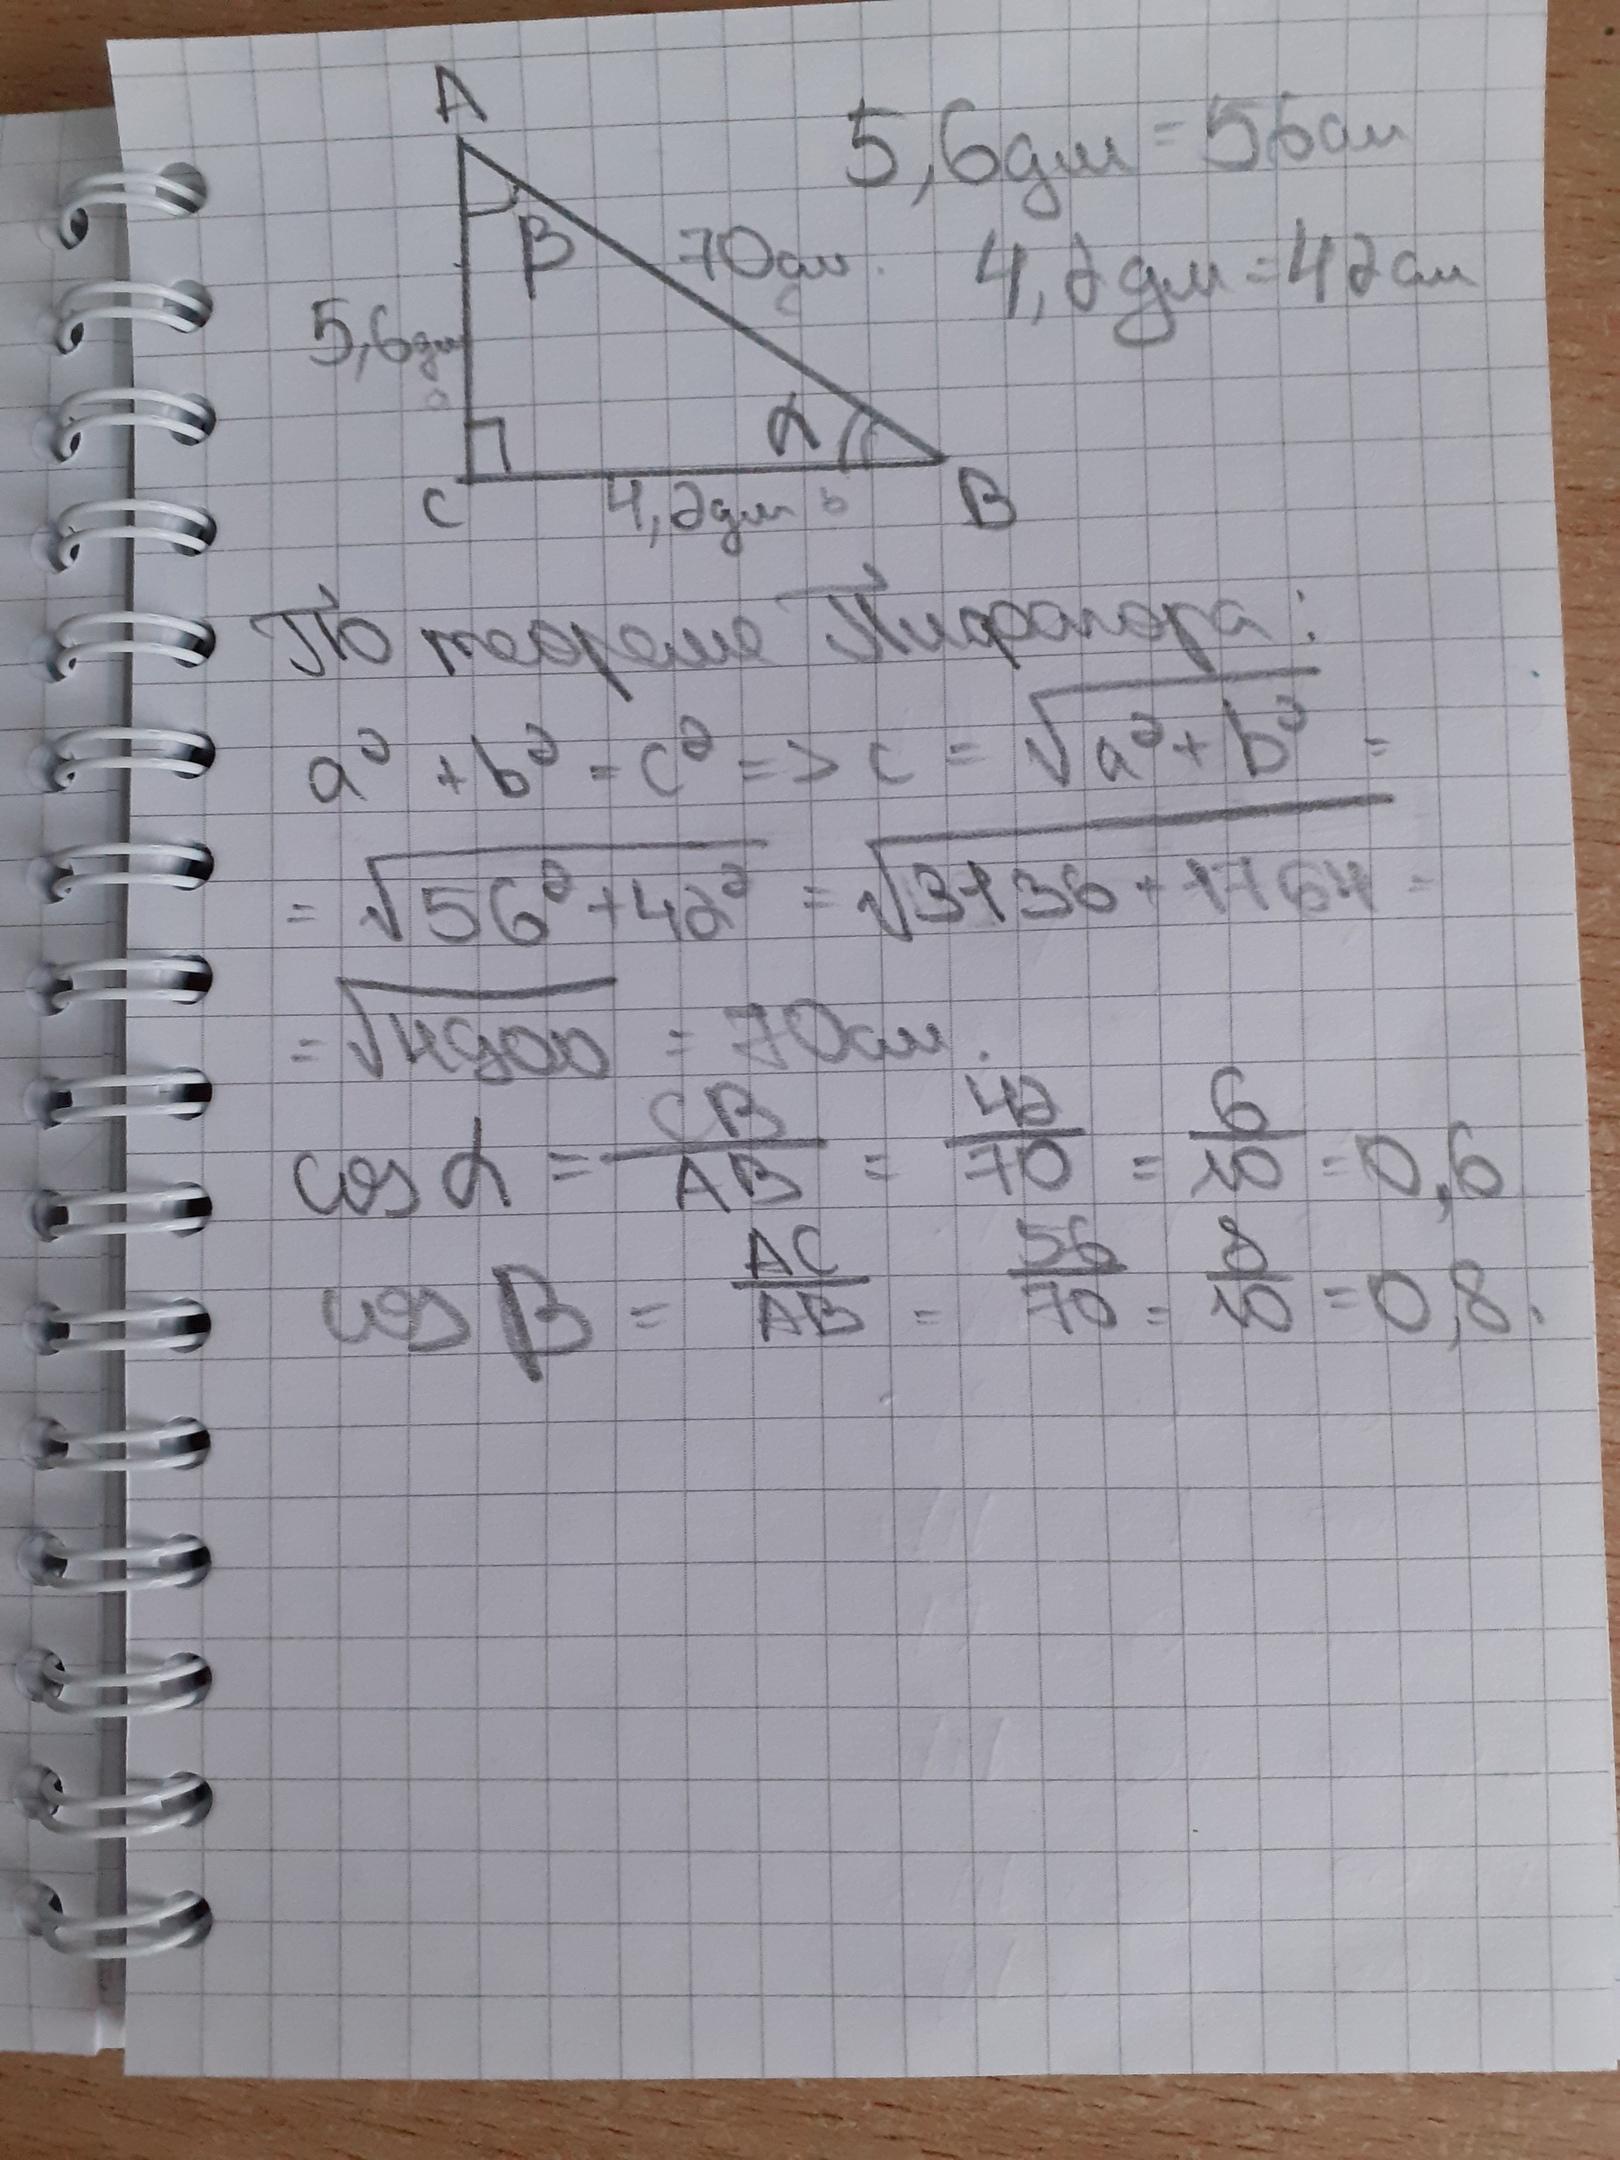 A
5,6дм = 56см
β
70дм.
4,2дм = 42см
5,6дм
a
α
C
4,2дм b
B
По теореме Пифагора:
a² + b² = c² => c = √a² + b² =
= √56² + 42² = √3136 + 1764 =
= √4900 = 70см.
cos α = CB/AB = 42/70 = 6/10 = 0,6
cos β = AC/AB = 56/70 = 8/10 = 0,8.